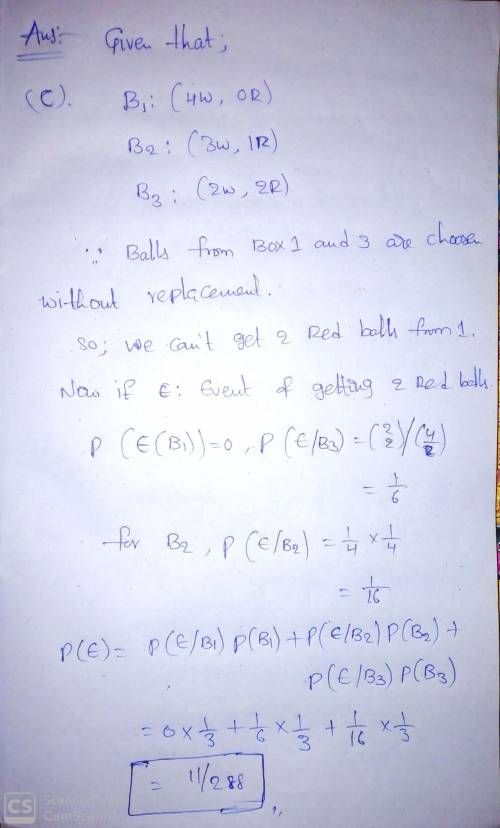 Ans:- Given that;
(C). B₁: (4W, 0R)
B₂ : (3W, 1R)
B₃ : (2W, 2R)
∵ Balls from Box 1 and 3 are choosen
without replacement.
So; we can't get 2 Red balls from 1.
Now if E: Event of getting 2 Red balls.
P (E(B₁)) = 0, P (E/B₃) = (2 2)/(4 2)
= 1/6
for B₂, P(E/B₂) = 1/4 × 1/4
= 1/16
P(E) = P(E/B₁) P(B₁) + P(E/B₂) P(B₂) +
P(E/B₃) P(B₃)
= 0 × 1/3 + 1/6 × 1/3 + 1/16 × 1/3
= 11/288
CS Scanned with
CamScanner